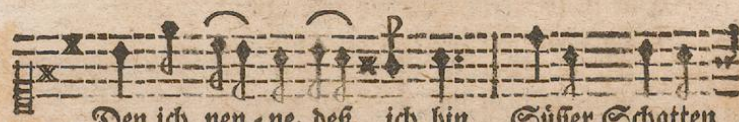 Den ich nen - ne, deß ich bin Süsser Schatten